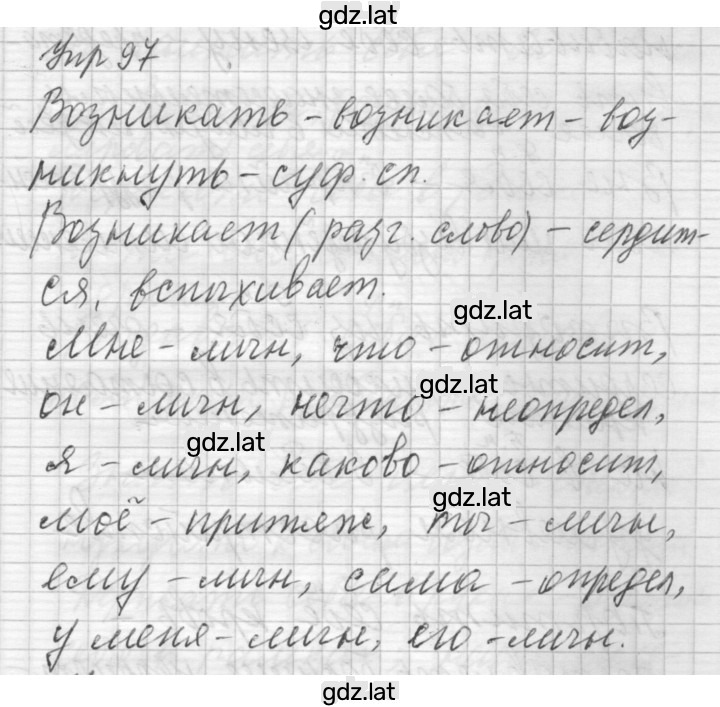 gdz.lat
Упр 97
Возникать – возникает – воз-
никнуть – суф. сп.
Возникает (разг. слово) – сердит-
ся, вспыхивает.
gdz.lat
Мне – личн, что – относит,
gdz.lat
он – личн, нечто – неопредел,
gdz.lat
я – личн, каково – относит,
gdz.lat
моё – притяж, ты – личн,
ему – личн, сама – определ,
у меня – личн, его – личн.
gdz.lat